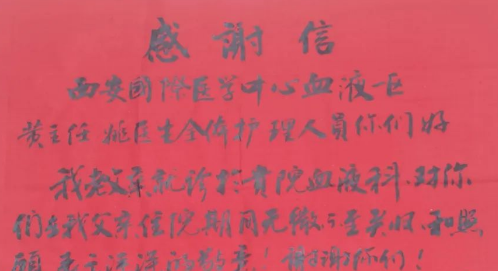 感謝信
西安國際医学中心血液一区
黄主任 姚医生全体护理人員你们好
我老父亲就诊于貴院血液科、对你
们在我父亲住院期间无微不至关怀和照
顾 表示深深的敬意！謝謝你们！